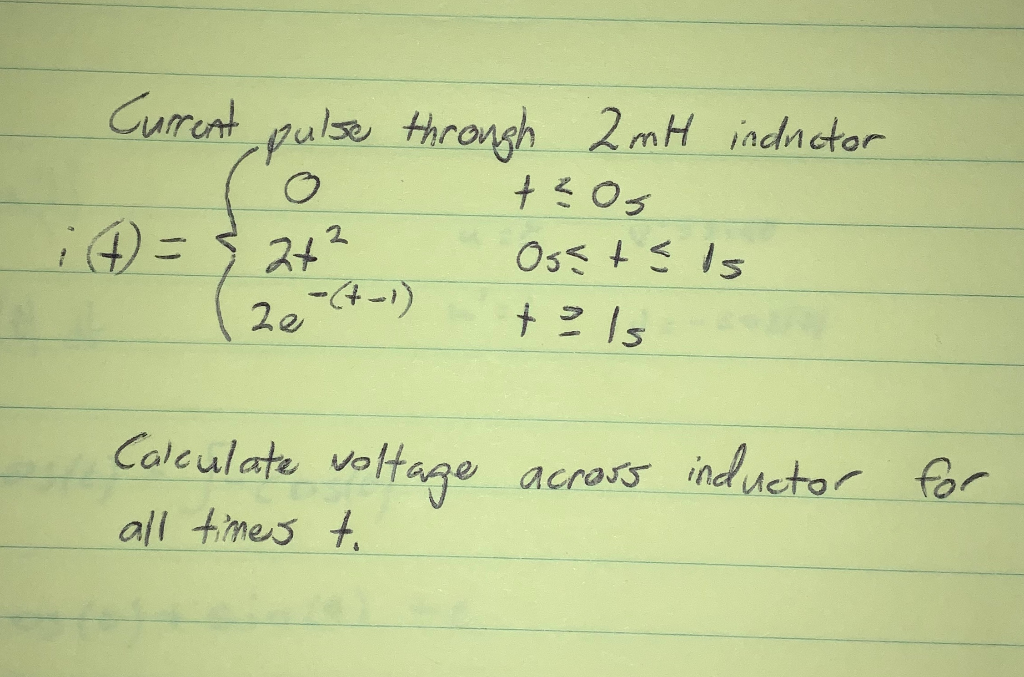 Current pulse through 2mH inductor
0 t ≤ 0s
i(t) = { 2t² 0s ≤ t ≤ 1s
2e^-(t-1) t ≥ 1s
Calculate voltage across inductor for
all times t.